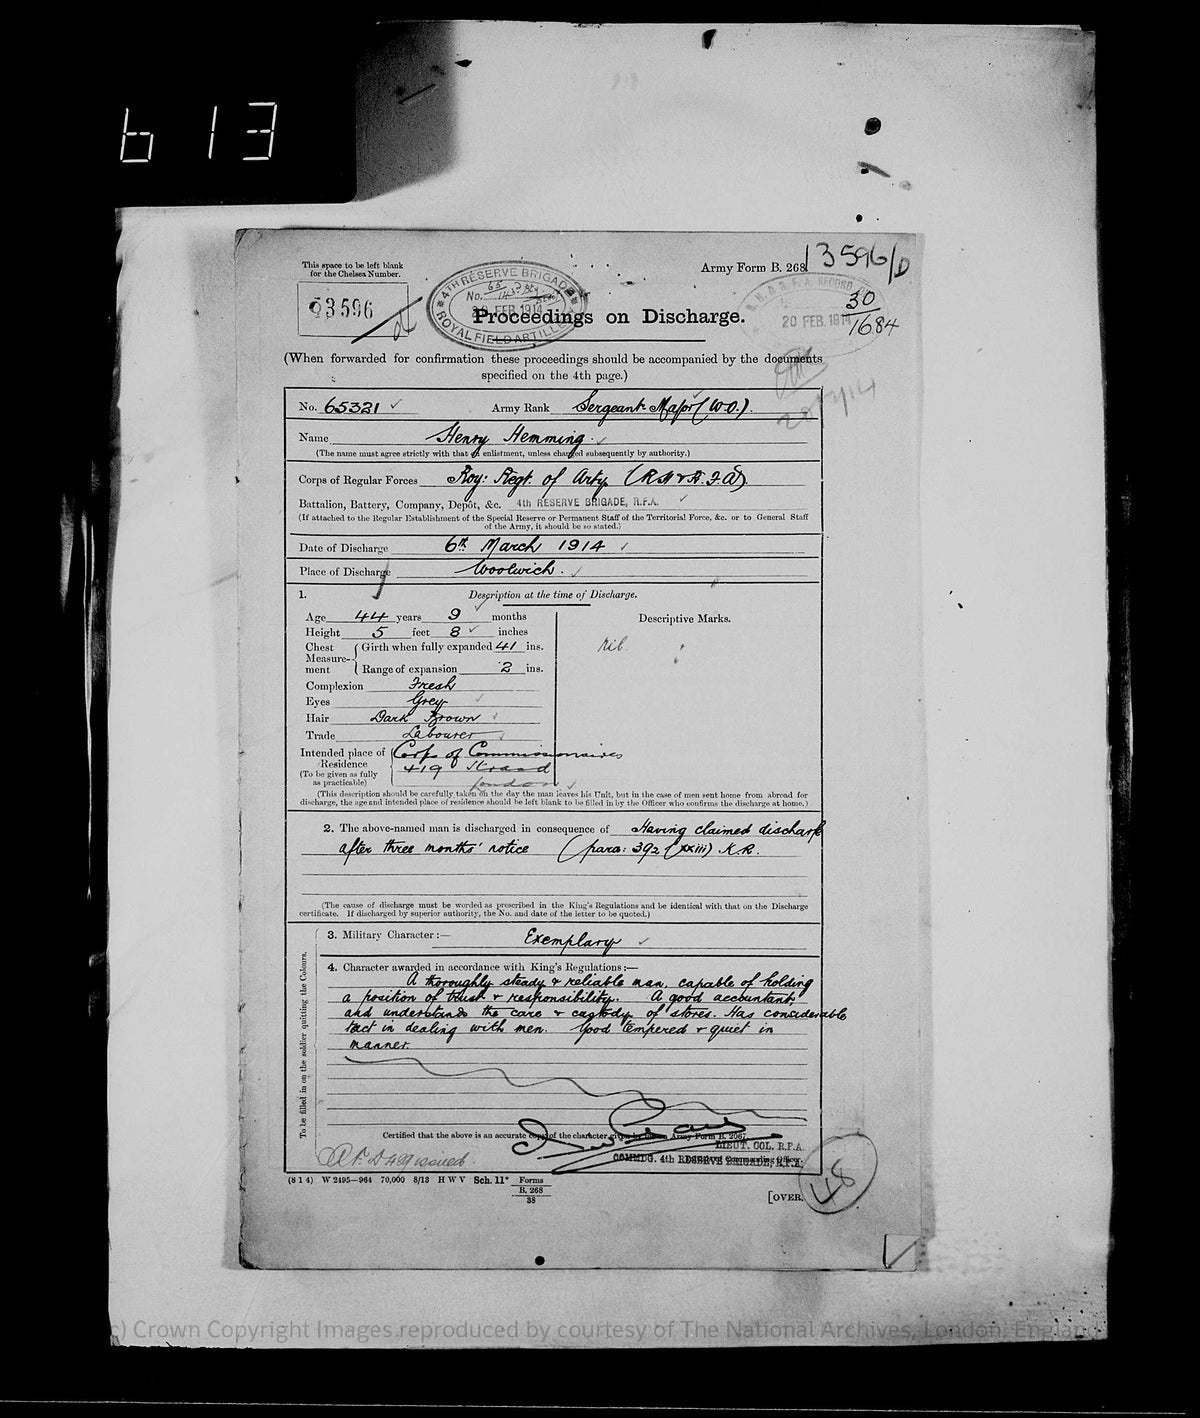 613
This space to be left blank
for the Chelsea Number.
53596
4TH RESERVE BRIGADE
No. 65
20 FEB. 1914
ROYAL FIELD ARTILLERY
Army Form B. 268
13596/D
RECORD
20 FEB. 1914
30
1684
Proceedings on Discharge.
(When forwarded for confirmation these proceedings should be accompanied by the documents
specified on the 4th page.)
No. 65321 Army Rank Sergeant-Major (W.O.).
Name Henry Hemming
(The name must agree strictly with that of enlistment, unless changed subsequently by authority.)
Corps of Regular Forces Roy: Regt. of Arty (R.H & R.F.A)
Battalion, Battery, Company, Depôt, &c. 4th RESERVE BRIGADE, R.F.A.
(If attached to the Regular Establishment of the Special Reserve or Permanent Staff of the Territorial Force, &c. or to General Staff
of the Army, it should be so stated.)
Date of Discharge 6th March 1914
Place of Discharge Woolwich.
1. Description at the time of Discharge.
Age 44 years 9 months
Height 5 feet 8 inches
Chest Measurement Girth when fully expanded 41 ins.
Range of expansion 2 ins.
Complexion Fresh
Eyes Grey
Hair Dark Brown
Trade Labourer
Intended place of Residence Corps of Commissionaires
419 Strand
(To be given as fully as practicable) London
Descriptive Marks.
nil.
(This description should be carefully taken on the day the man leaves his Unit, but in the case of men sent home from abroad for
discharge, the age and intended place of residence should be left blank to be filled in by the Officer who confirms the discharge at home.)
2. The above-named man is discharged in consequence of Having claimed discharge
after three months' notice (para: 392 (xxiii) K.R.
(The cause of discharge must be worded as prescribed in the King's Regulations and be identical with that on the Discharge
certificate. If discharged by superior authority, the No. and date of the letter to be quoted.)
To be filled in on the soldier quitting the Colours.
3. Military Character:— Exemplary
4. Character awarded in accordance with King's Regulations:—
A thoroughly steady & reliable man, capable of holding
a position of trust & responsibility. A good accountant
and understands the care & custody of stores. Has considerable
tact in dealing with men. Good tempered & quiet in
manner.
Certified that the above is an accurate copy of the character given by me on Army Form B. 2067.
LIEUT. COL. R.F.A.
COMMDG. 4th RESERVE BRIGADE, R.F.A.
issued.
(8 1 4) W 2495—964 70,000 8/13 H W V Sch. 11* Forms
B. 268
38
[OVER.
48
(c) Crown Copyright Images reproduced by courtesy of The National Archives, London, England